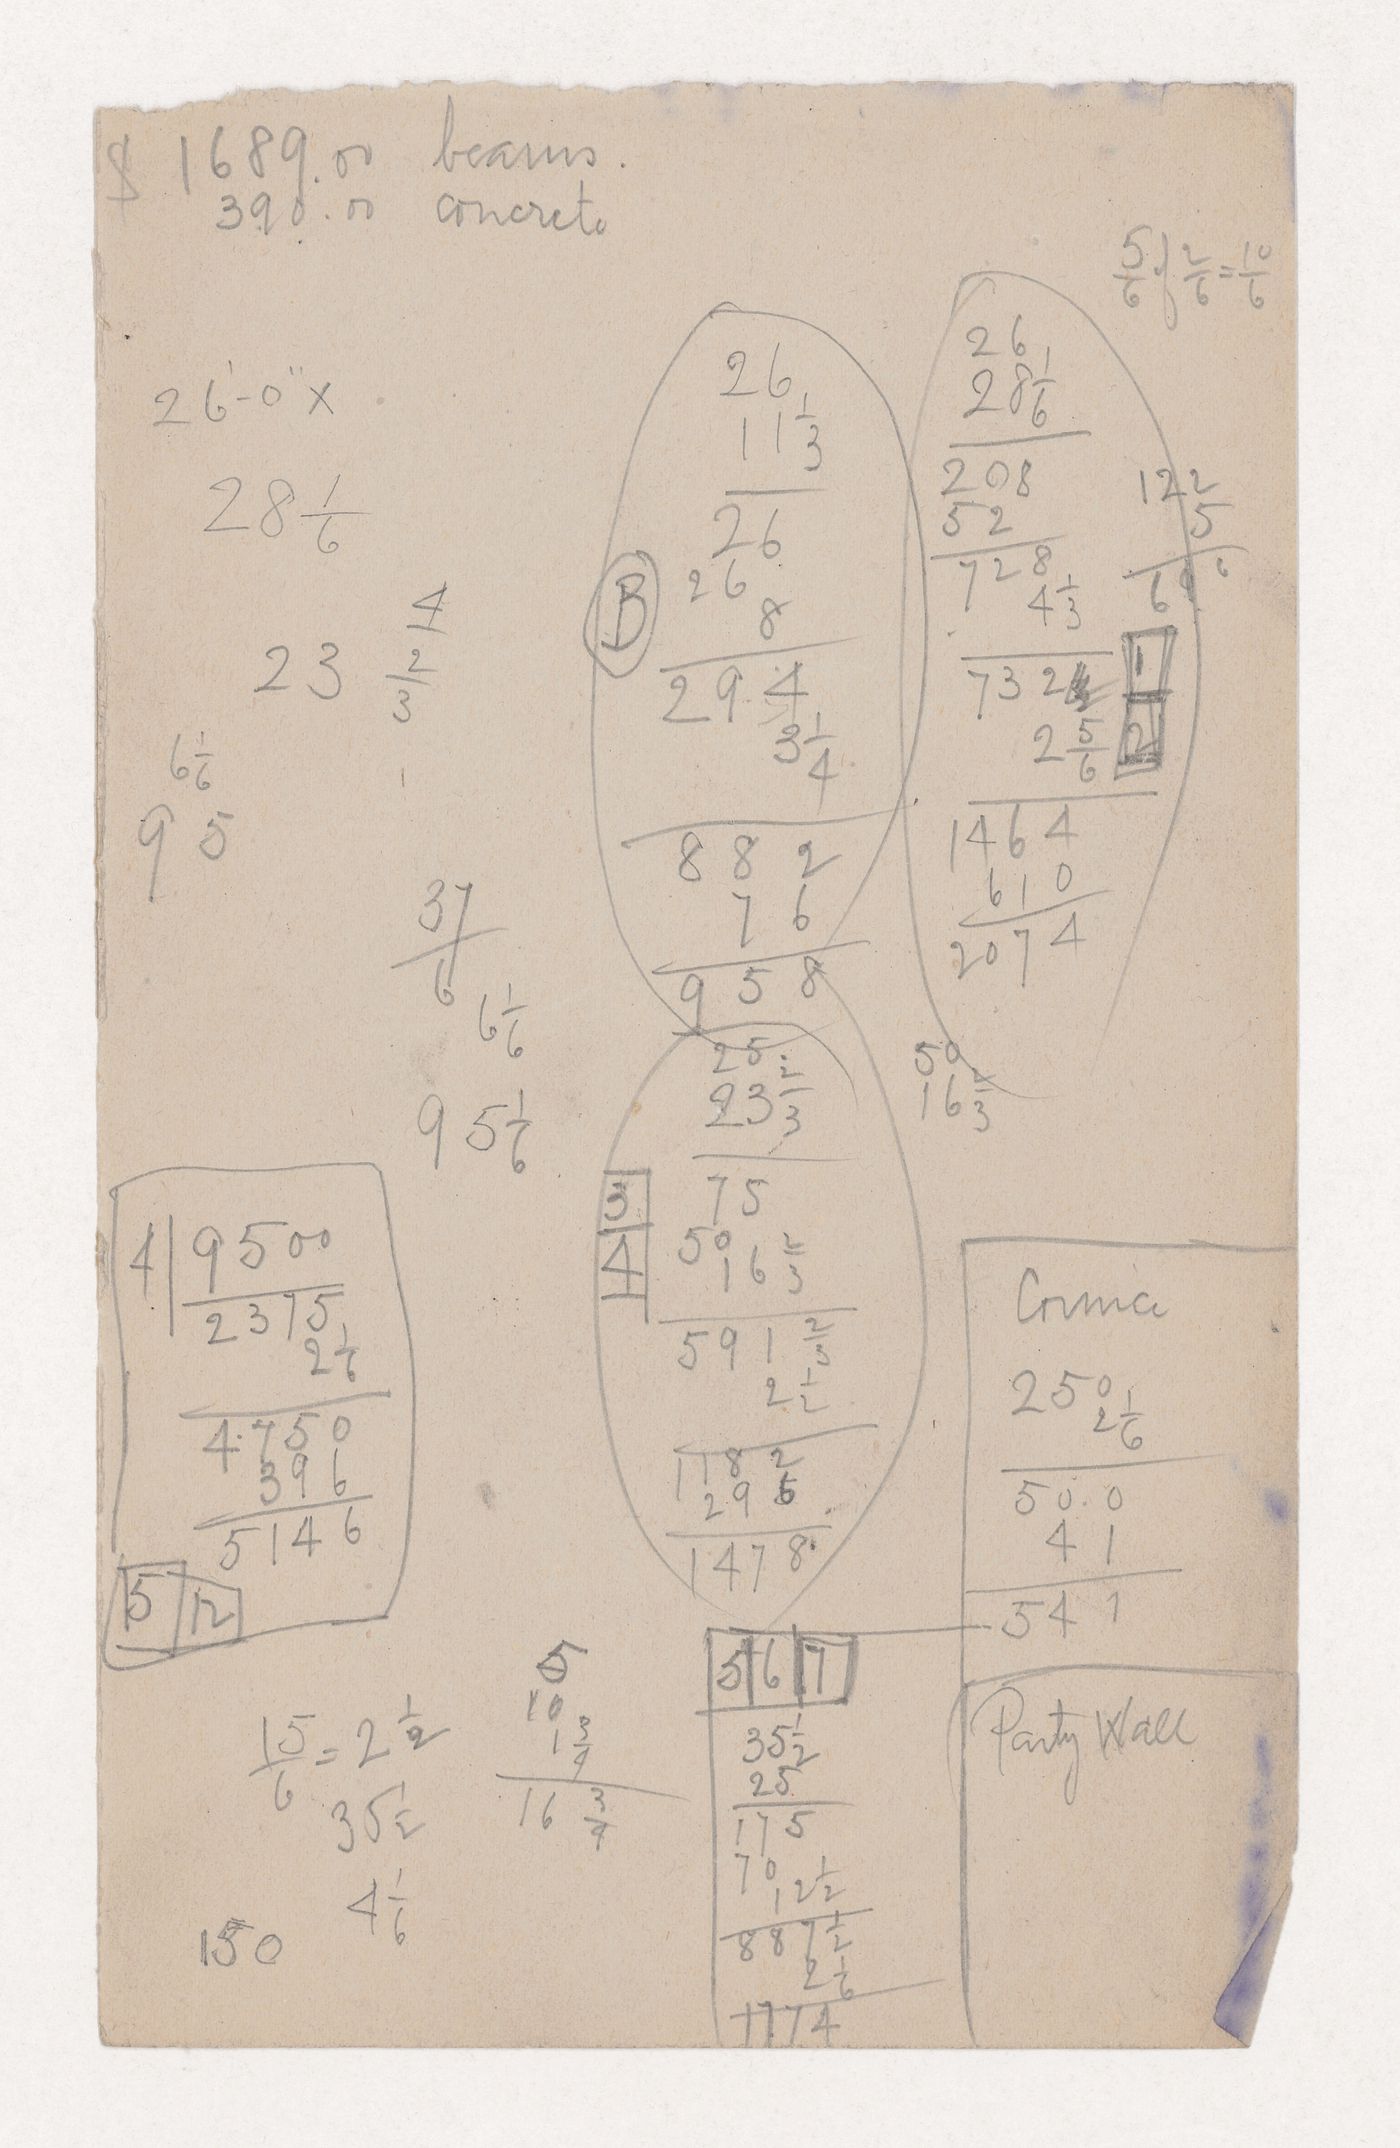 $ 1689.00 beams.
390.00 concrete
5/6 of 2/6 = 10/6
26'-0" x
28 1/6
23
4
2/3
6 1/6
9 5
37/6
6 1/6
9 5 1/6
26
11 1/3
26
26
8
B
294
3 1/4
882
76
958
26
28 1/6
208
52
728
4 1/3
732
1
2 5/6
2
1464
610
2074
122
5
25
23 2/3
75
50
16 2/3
3
4
591 2/3
2 1/2
1182
296
1478
50
16 2/3
4 9500
2375
2 1/6
4750
396
5146
5 12
Cornice
250
2 1/6
500
41
541
Party Wall
15/6 = 2 1/2
35 1/2
4 1/6
150
5
10
16
5 6 7
35 1/2
25
175
70
12 1/2
887 1/2
2 1/6
1774